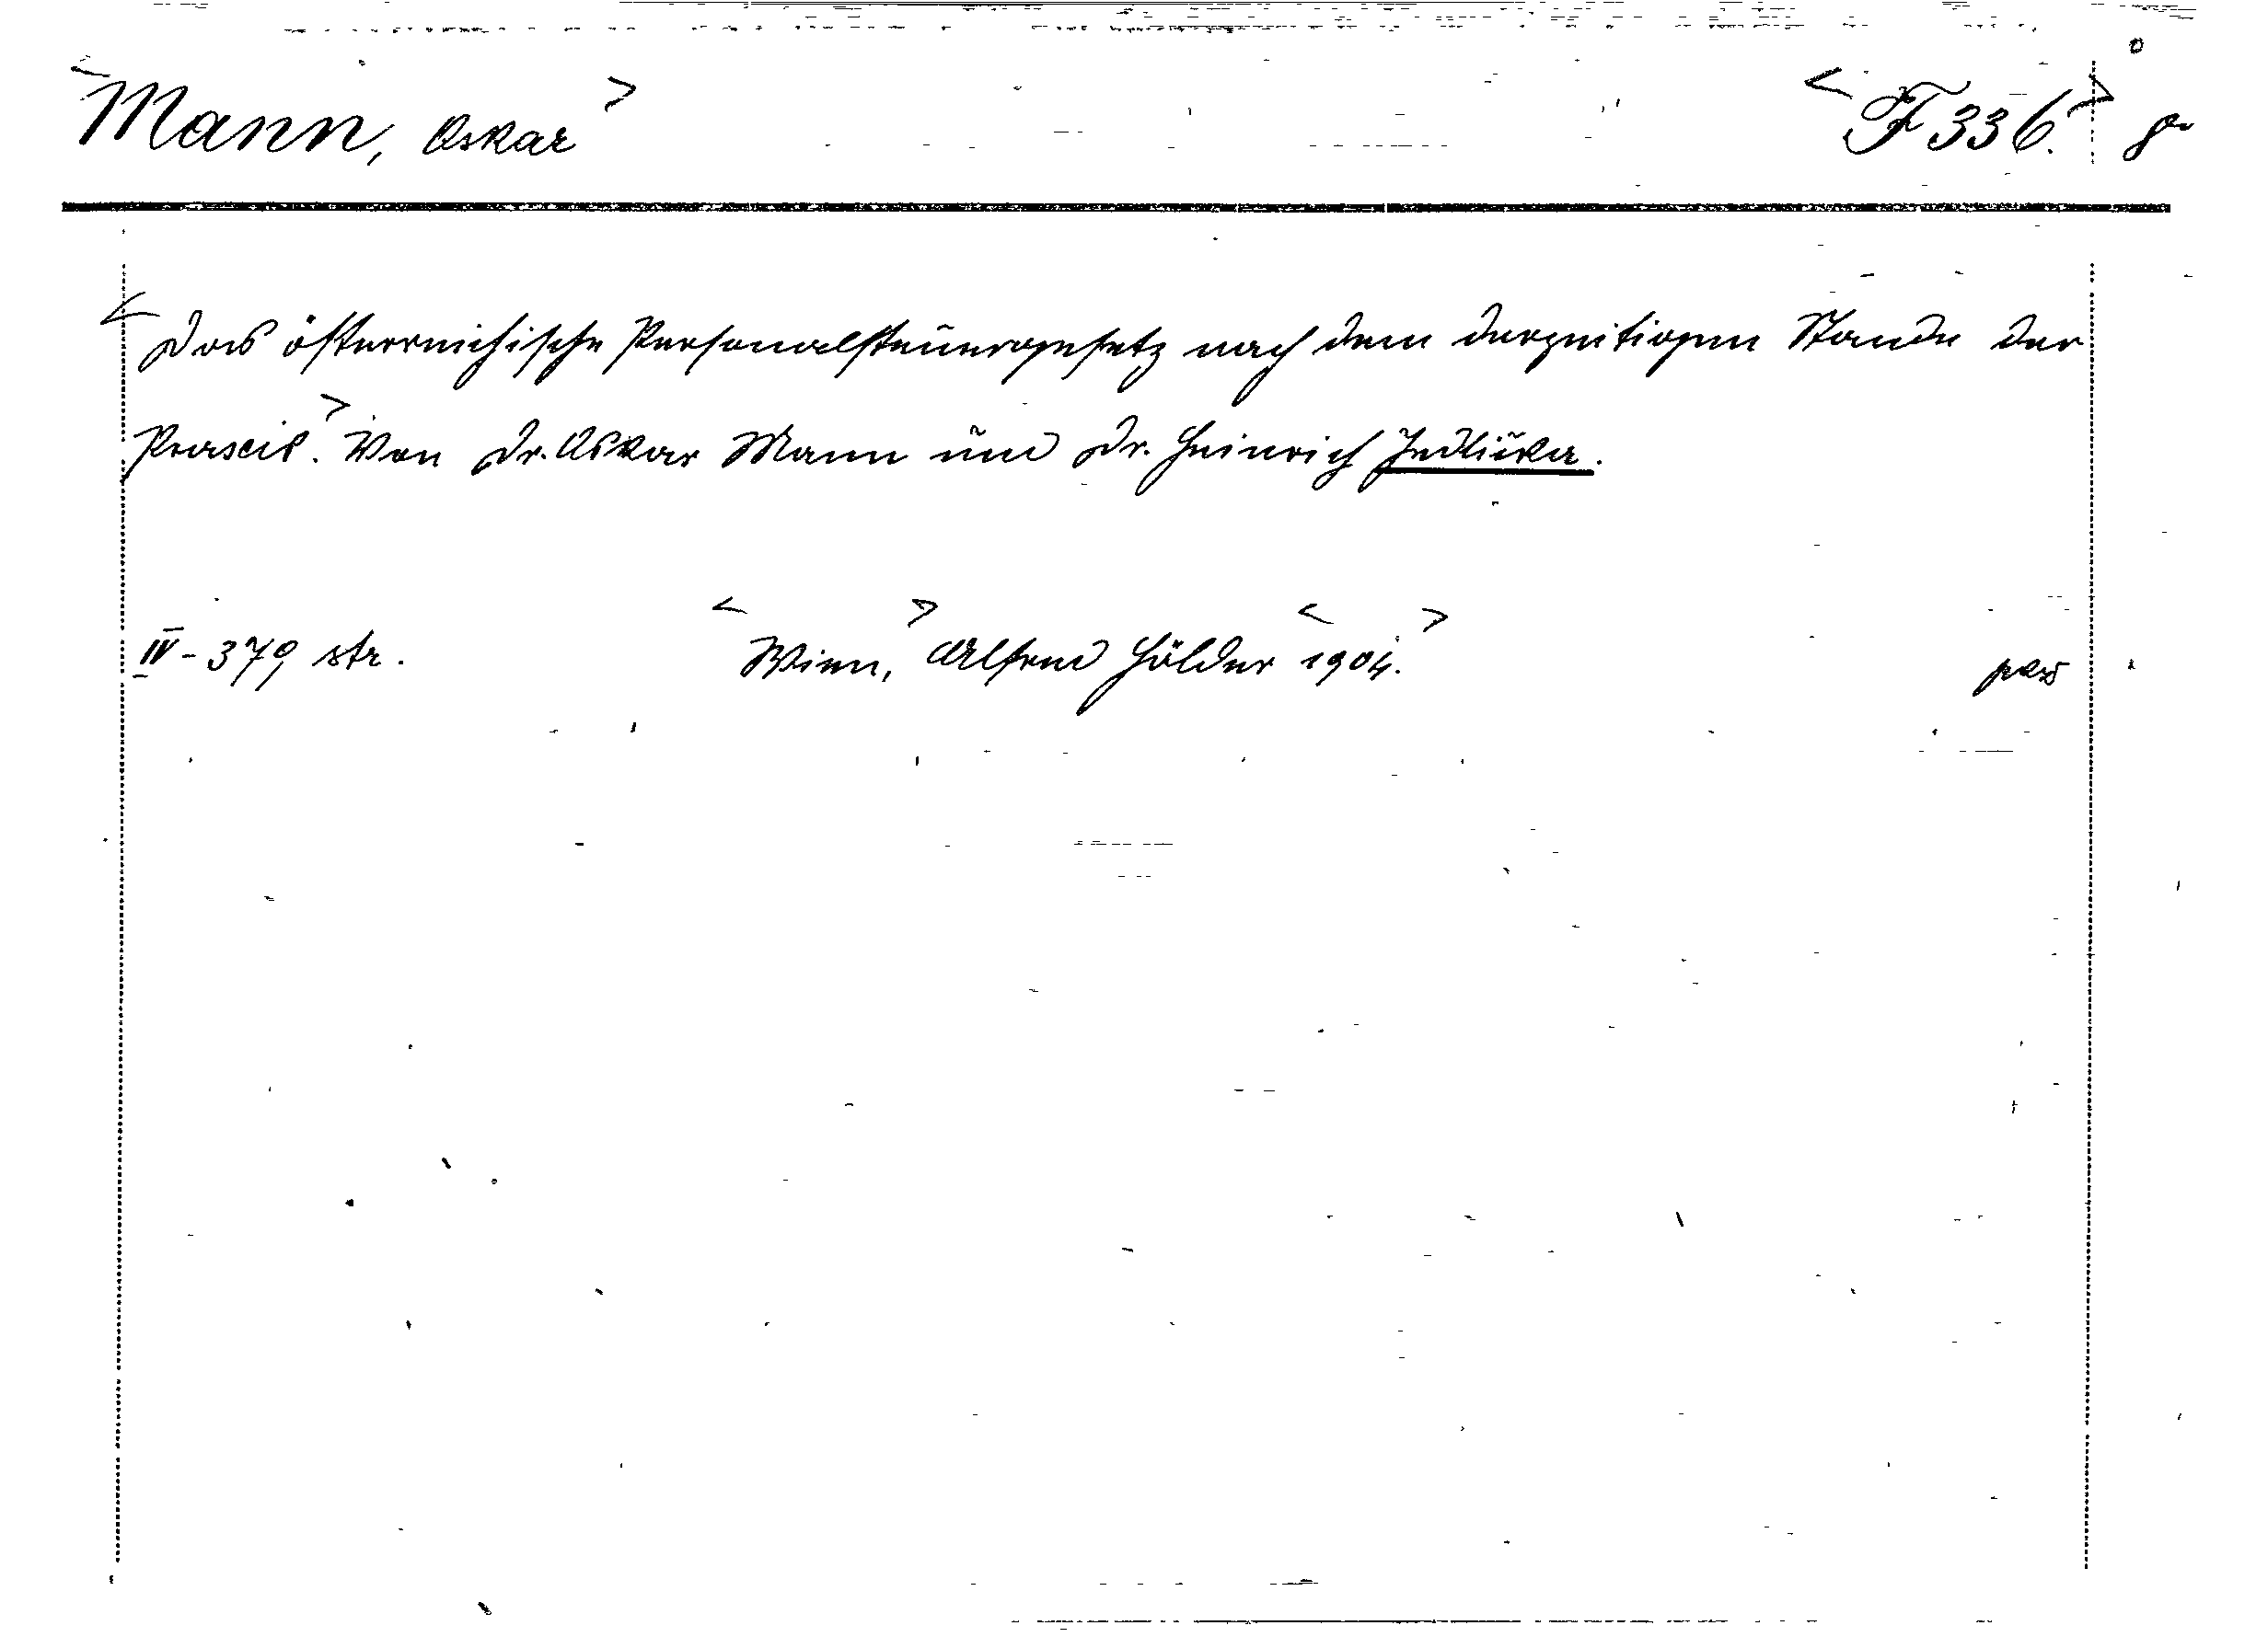 <Mann, Oskar> <F 336.> 8°
<Das österreichische Personalsteuergesetz nach dem derzeitigen Stande der
Praxis.> Von Dr. Oskar Mann und Dr. Heinrich Jedlička.
IV - 379 str. <Wien,> Alfred Hölder <1904.>